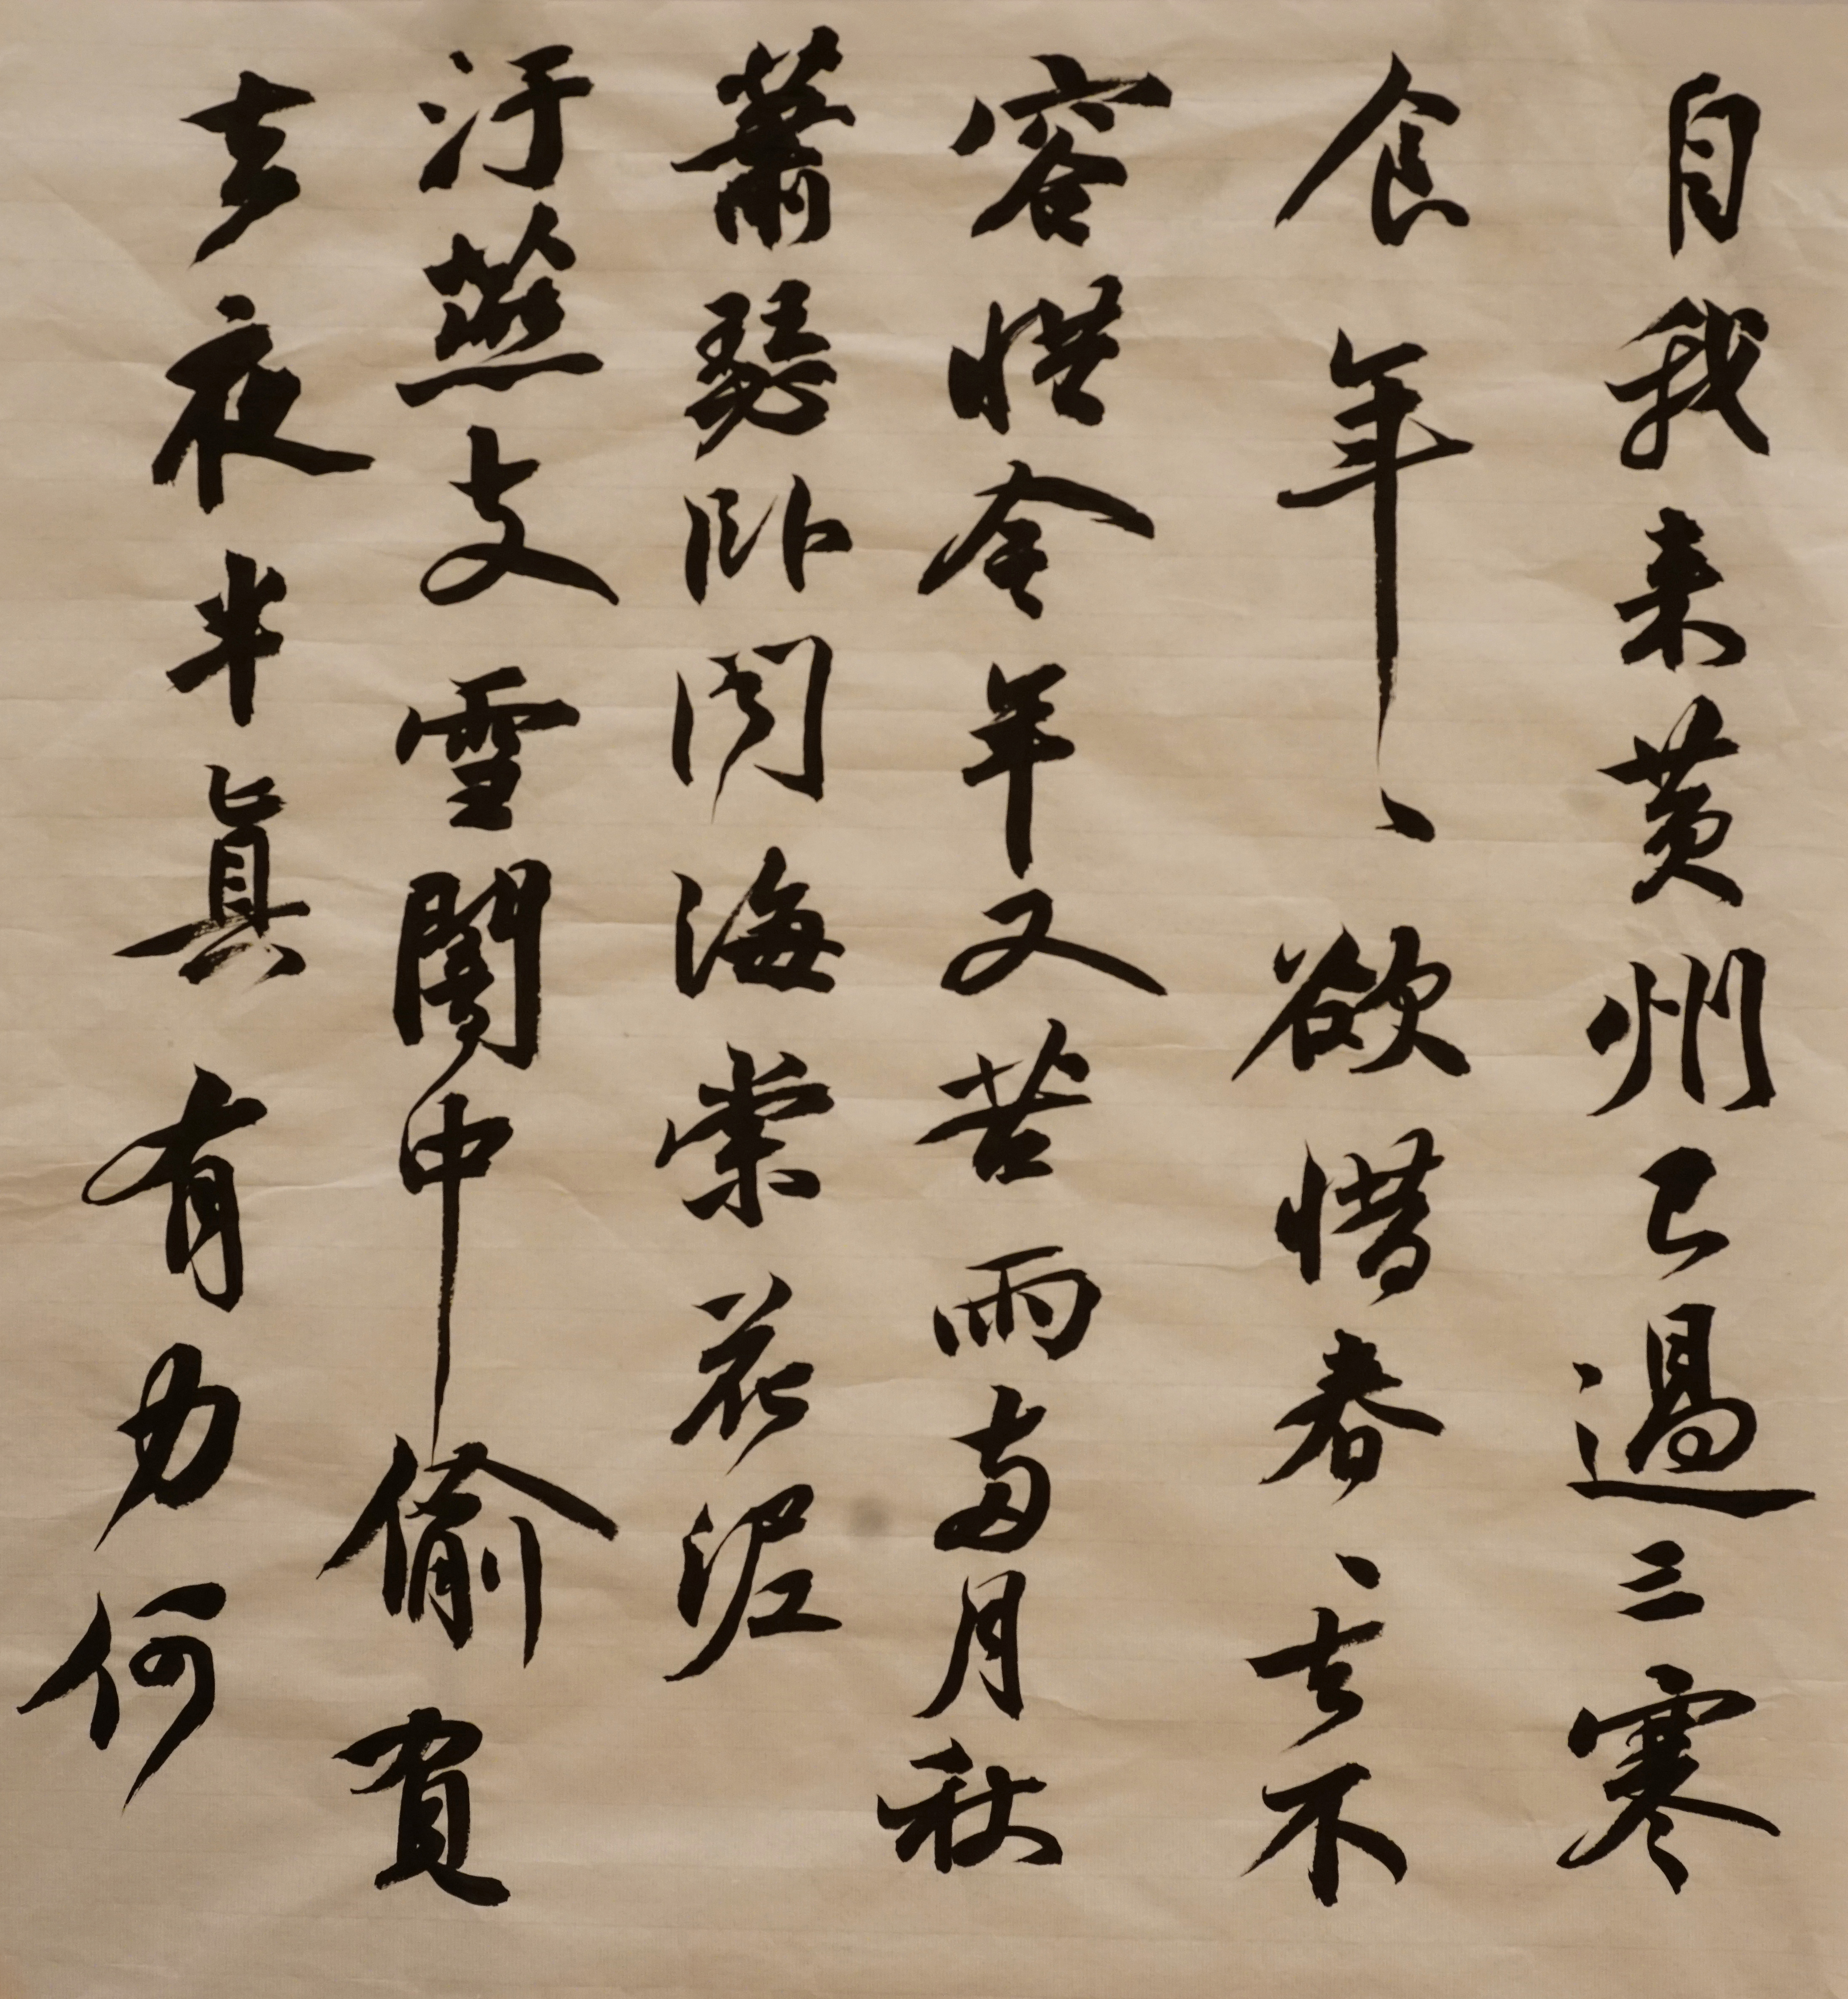 自我来黄州已過三寒
食年〻欲惜春〻去不
容惜今年又苦雨两月秋
蕭瑟卧聞海棠花泥
汙燕支雪闇中偷負
去夜半真有力何